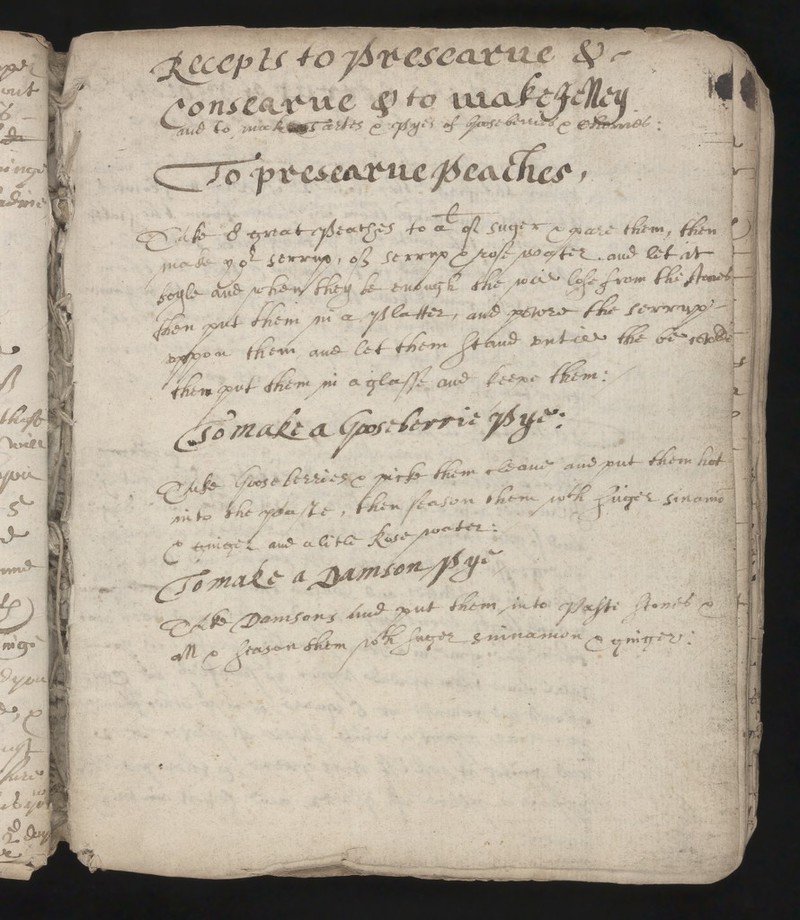 Recepts to Presearue &
Consearue & to make Jelley
and to make Tartes & Pyes of Gooseberries & Cherries:
To presearue Peaches,
Take 8 great Peaches to a l of suger & pare them, then
make yor serrup, of serrup & rose water, and let it
boyle and when they be enough the will lose from the stones
then put them in a Platter, and powre the serrup
vppon them and let them stand vntill the be
then put them in a glasse and keepe them:
To make a Gooseberrie Pye:
Take Gooseberries & picke them cleane and put them hot
into the paste, then season them wth suger sinamō
& ginger and a litle Rose water:
To make a Damson Pye
Take Damsons and put them into Paste stones &
all & season them wth suger sinnamon & ginger: